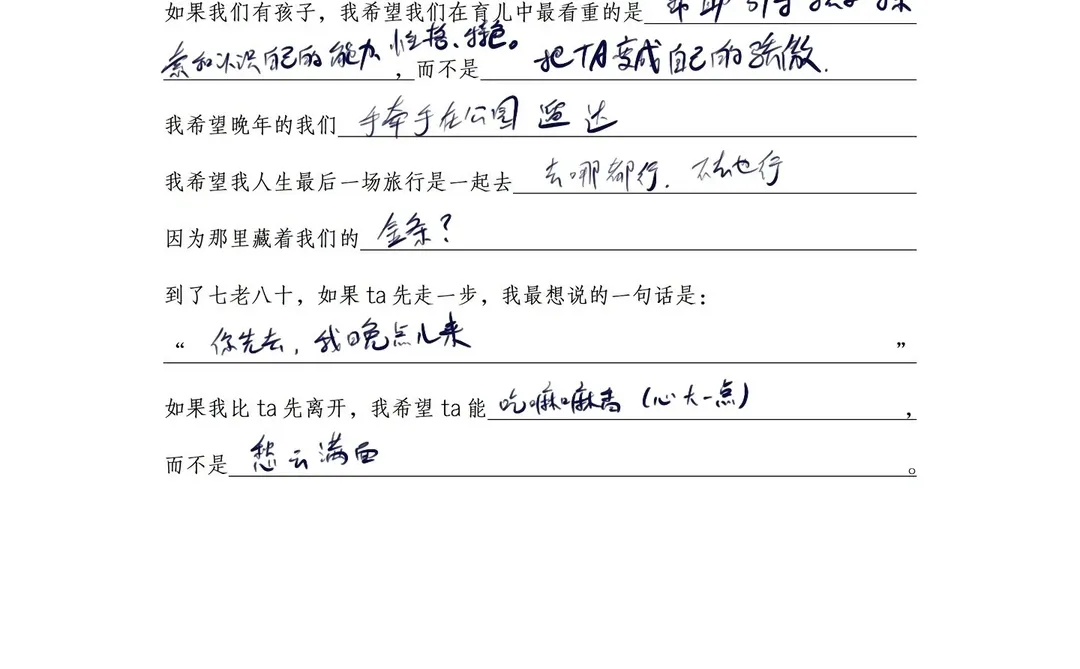 如果我们有孩子，我希望我们在育儿中最看重的是 帮助 引导 孩子 探
索和认识自己的能力、性格、特色。，而不是 把TA变成自己的骄傲.
我希望晚年的我们 手牵手在公园 遛 达
我希望我人生最后一场旅行是一起去 去哪都行. 不去也行
因为那里藏着我们的 金条？
到了七老八十，如果 ta 先走一步，我最想说的一句话是：
“ 你先去，我晚点儿来 ”
如果我比 ta 先离开，我希望 ta 能 吃嘛嘛香（心大一点），
而不是 愁云满面。